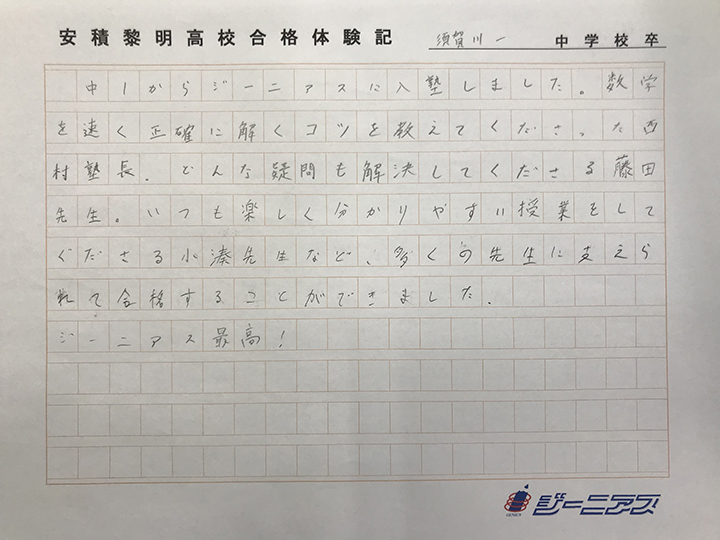 安積黎明高校合格体験記 須賀川一 中学校卒
中1からジーニアスに入塾しました。数学
を速く正確に解くコツを教えてくださった西
村塾長、どんな疑問も解決してくださる藤田
先生。いつも楽しく分かりやすい授業をして
くださる小湊先生など、多くの先生に支えら
れて合格することができました。
ジーニアス最高!
GENIUS ジーニアス